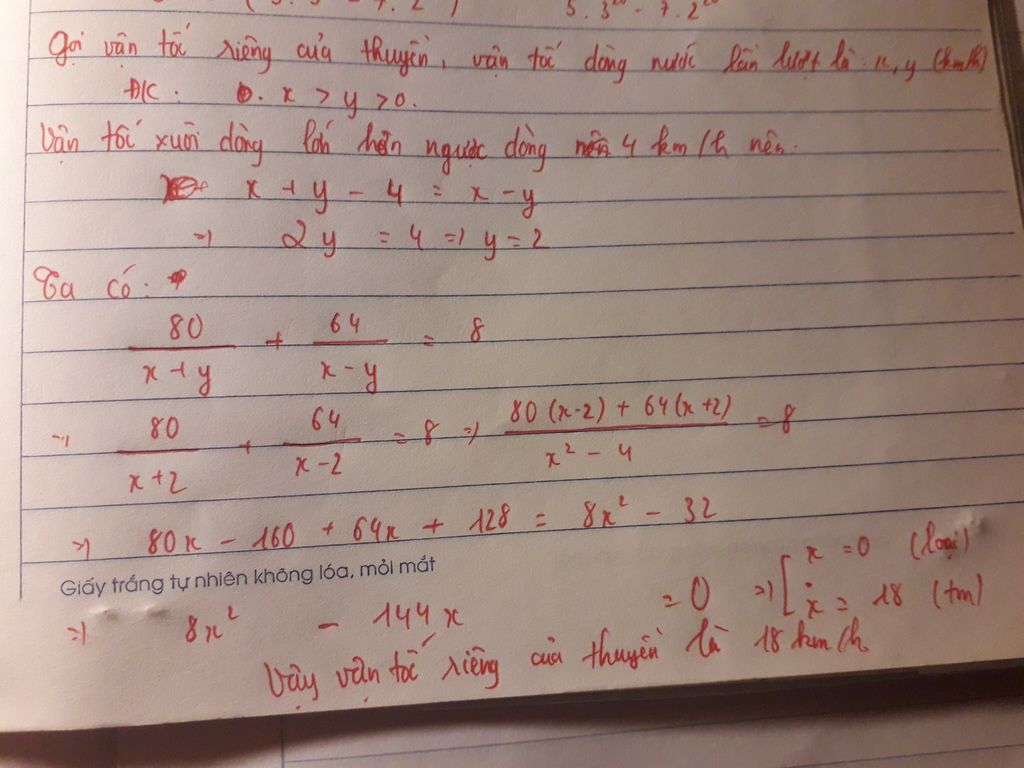 5.3²⁰ - 7.2²⁰
Gọi vận tốc riêng của thuyền, vận tốc dòng nước lần lượt là: x, y (km/h)
ĐK: x > y > 0.
Vận tốc xuôi dòng lớn hơn ngược dòng 4 km/h nên.
x + y - 4 = x - y
=> 2y = 4 => y = 2
Ta có:
80/(x + y) + 64/(x - y) = 8
=> 80/(x+2) + 64/(x-2) = 8 => (80(x-2) + 64(x+2))/(x² - 4) = 8
=> 80x - 160 + 64x + 128 = 8x² - 32
Giấy trắng tự nhiên không lóa, mỏi mắt
=> 8x² - 144x = 0 => [ x = 0 (loại)
x = 18 (tm)
Vậy vận tốc riêng của thuyền là 18 km/h